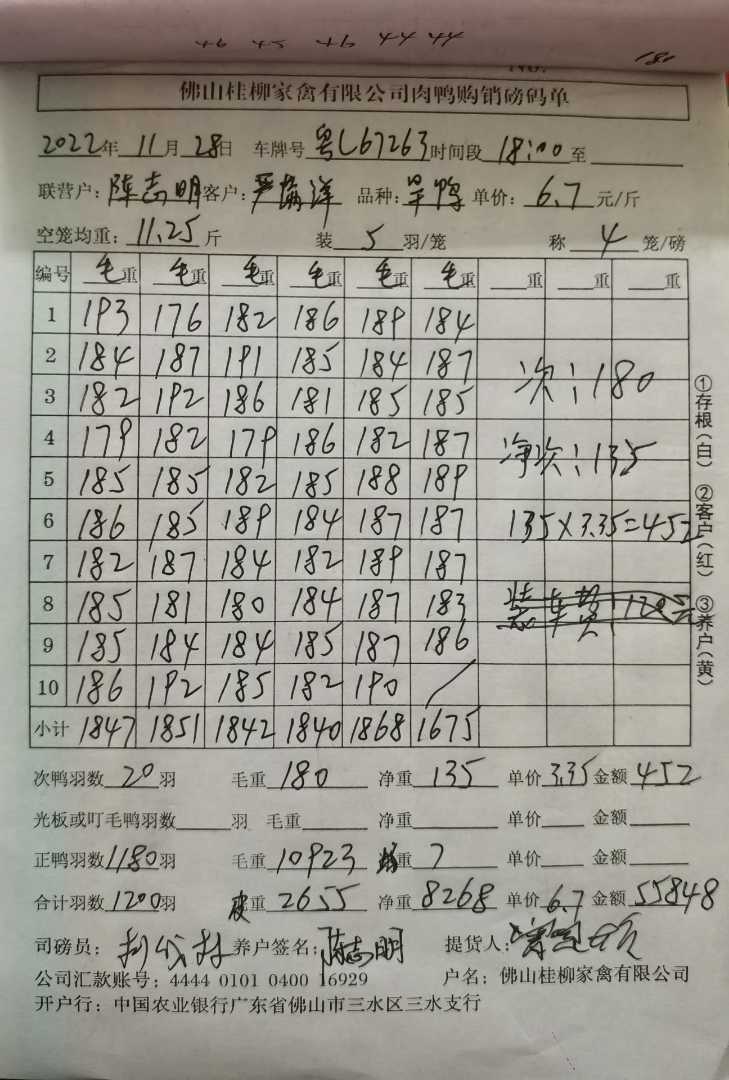 181
佛山桂柳家禽有限公司肉鸭购销磅码单
2022年 11月 28日 车牌号 粤L67263 时间段 18:00 至
联营户: 陈志明 客户: 品种: 旱鸭 单价: 6.7 元/斤
空笼均重: 11.25 斤 装 5 羽/笼 称 4 笼/磅
编号 毛重 毛重 毛重 毛重 毛重 毛重 重 重 重
1 193 176 182 186 189 184
2 184 187 191 185 184 187 次:180
3 182 192 186 181 185 185
4 179 182 179 186 182 187 净次:135
5 185 185 182 185 188 189
6 186 185 189 184 187 187 135×3.35=452
7 182 187 184 182 189 187
8 185 181 180 184 187 183 装车费 120元
9 185 184 184 185 187 186
10 186 192 185 182 190 /
小计 1847 1851 1842 1840 1868 1675
①存根(白) ②客户(红) ③养户(黄)
次鸭羽数 20 羽 毛重 180 净重 135 单价 3.35 金额 452
光板或叮毛鸭羽数 羽 毛重 净重 单价 金额
正鸭羽数 1180 羽 毛重 10923 重 7 单价 金额
合计羽数 1200 羽 皮重 2655 净重 8268 单价 6.7 金额 55848
司磅员: 养户签名: 陈志明 提货人:
公司汇款账号: 4444 0101 0400 16929 户名: 佛山桂柳家禽有限公司
开户行: 中国农业银行广东省佛山市三水区三水支行